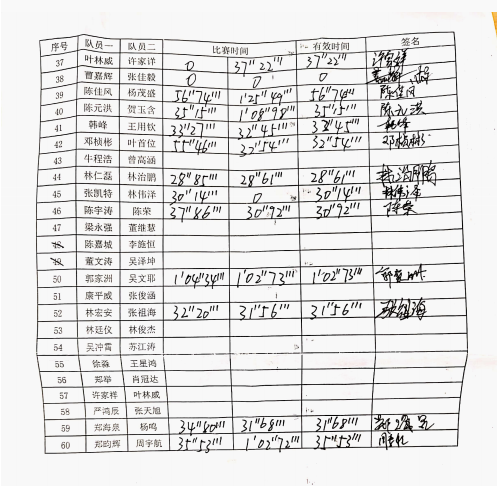 序号 队员一 队员二 比赛时间 有效时间 签名
37 叶林威 许家洋 0 37"22''' 37"22'''
38 曹嘉辉 张佳毅 0 0 0
39 陈佳风 杨茂盛 56"74''' 1'25"49''' 56"74''' 陈佳风
40 陈元洪 贺玉含 35"15''' 1'08"98''' 35"15''' 陈元洪
41 韩峰 王用钦 33"27''' 32"45''' 32"45''' 韩峰
42 邓桢彬 叶首位 55"46''' 32"54''' 32"54''' 邓桢彬
43 牛程浩 曾高涵
44 林仁磊 林冶鹏 28"85''' 28"61''' 28"61''' 林冶鹏
45 张凯特 林伟泽 30"14''' 0 30"14''' 林伟泽
46 陈宇涛 陈荣 37"86''' 30"92''' 30"92''' 陈荣
47 梁永强 董维慧
陈嘉城 李施恒
董文涛 吴泽坤
50 郭家洲 吴文耶 1'04"34''' 1'02"73''' 1'02"73'''
51 康平威 张俊涵
52 林宏安 张祖海 32"20''' 31"56''' 31"56''' 张祖海
53 林廷仪 林俊杰
54 吴冲霄 苏江涛
55 徐淼 王星鸿
56 郑举 肖冠达
57 许家祥 叶林威
58 严鸿辰 张天旭
59 郑海泉 杨鸣 34"80''' 31"68''' 31"68'''
60 郑昀辉 周宇航 35"53''' 1'02"72''' 35"53'''